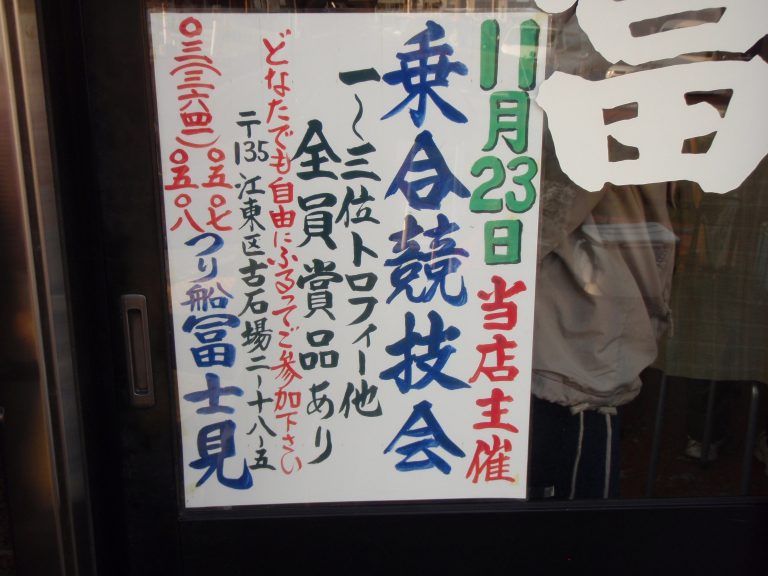 11月23日当店主催
乗合競技会
一〜三位トロフィー他
全員賞品あり
どなたでも自由にふるってご参加下さい
〒135江東区古石場二〜十八〜五
つり船冨士見
〇三(三六四一)〇五〇七
〇五〇八